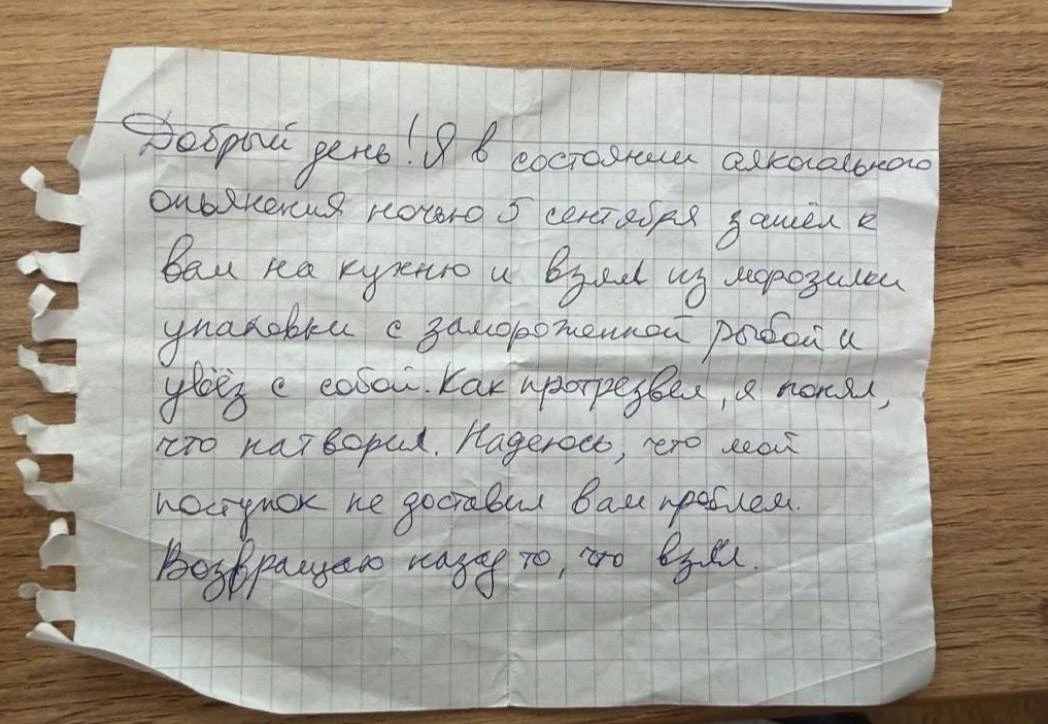 Добрый день! Я в состоянии алкогольного
опьянения ночью 5 сентября зашёл к
вам на кухню и взял из морозилки
упаковки с замороженной рыбой и
увёз с собой. Как протрезвел, я понял,
что натворил. Надеюсь, что мой
поступок не доставил вам проблем.
Возвращаю назад то, что взял.